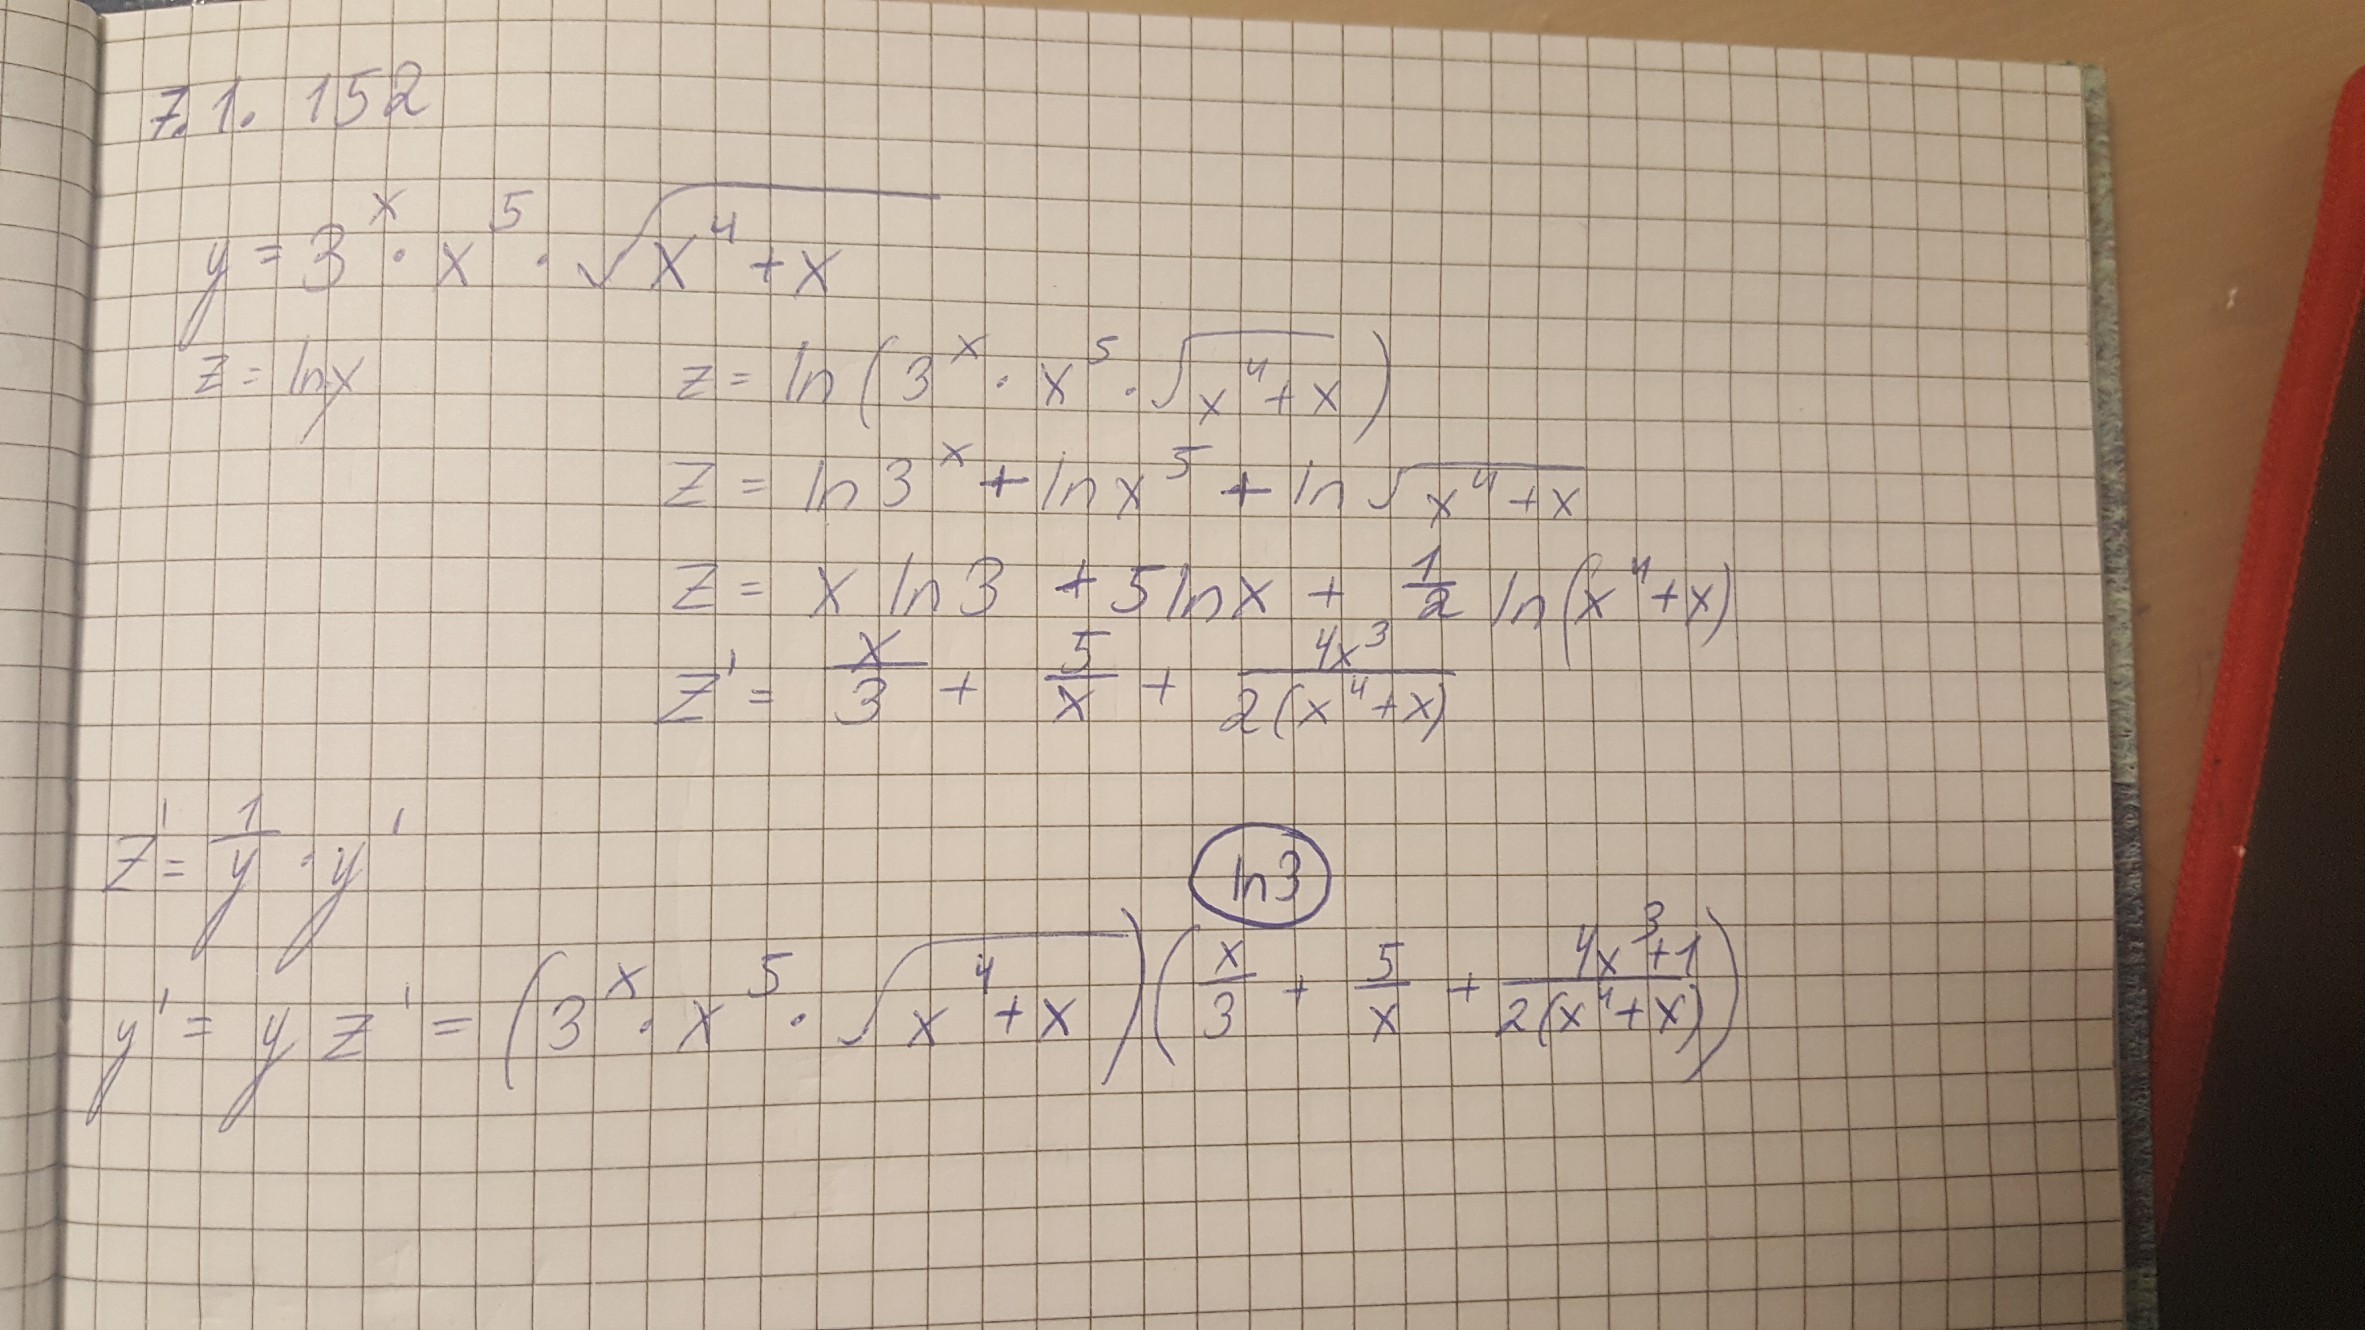 7.1. 152
y = 3^x · x^5 · √(x^4 + x)
z = ln y z = ln(3^x · x^5 · √(x^4 + x))
z = ln 3^x + ln x^5 + ln √(x^4 + x)
z = x ln 3 + 5 ln x + 1/2 ln(x^4 + x)
z' = x/3 + 5/x + 4x^3/2(x^4 + x)
z' = 1/y · y'
ln 3
y' = y z' = (3^x · x^5 · √(x^4 + x)) (x/3 + 5/x + 4x^3+1/2(x^4 + x))